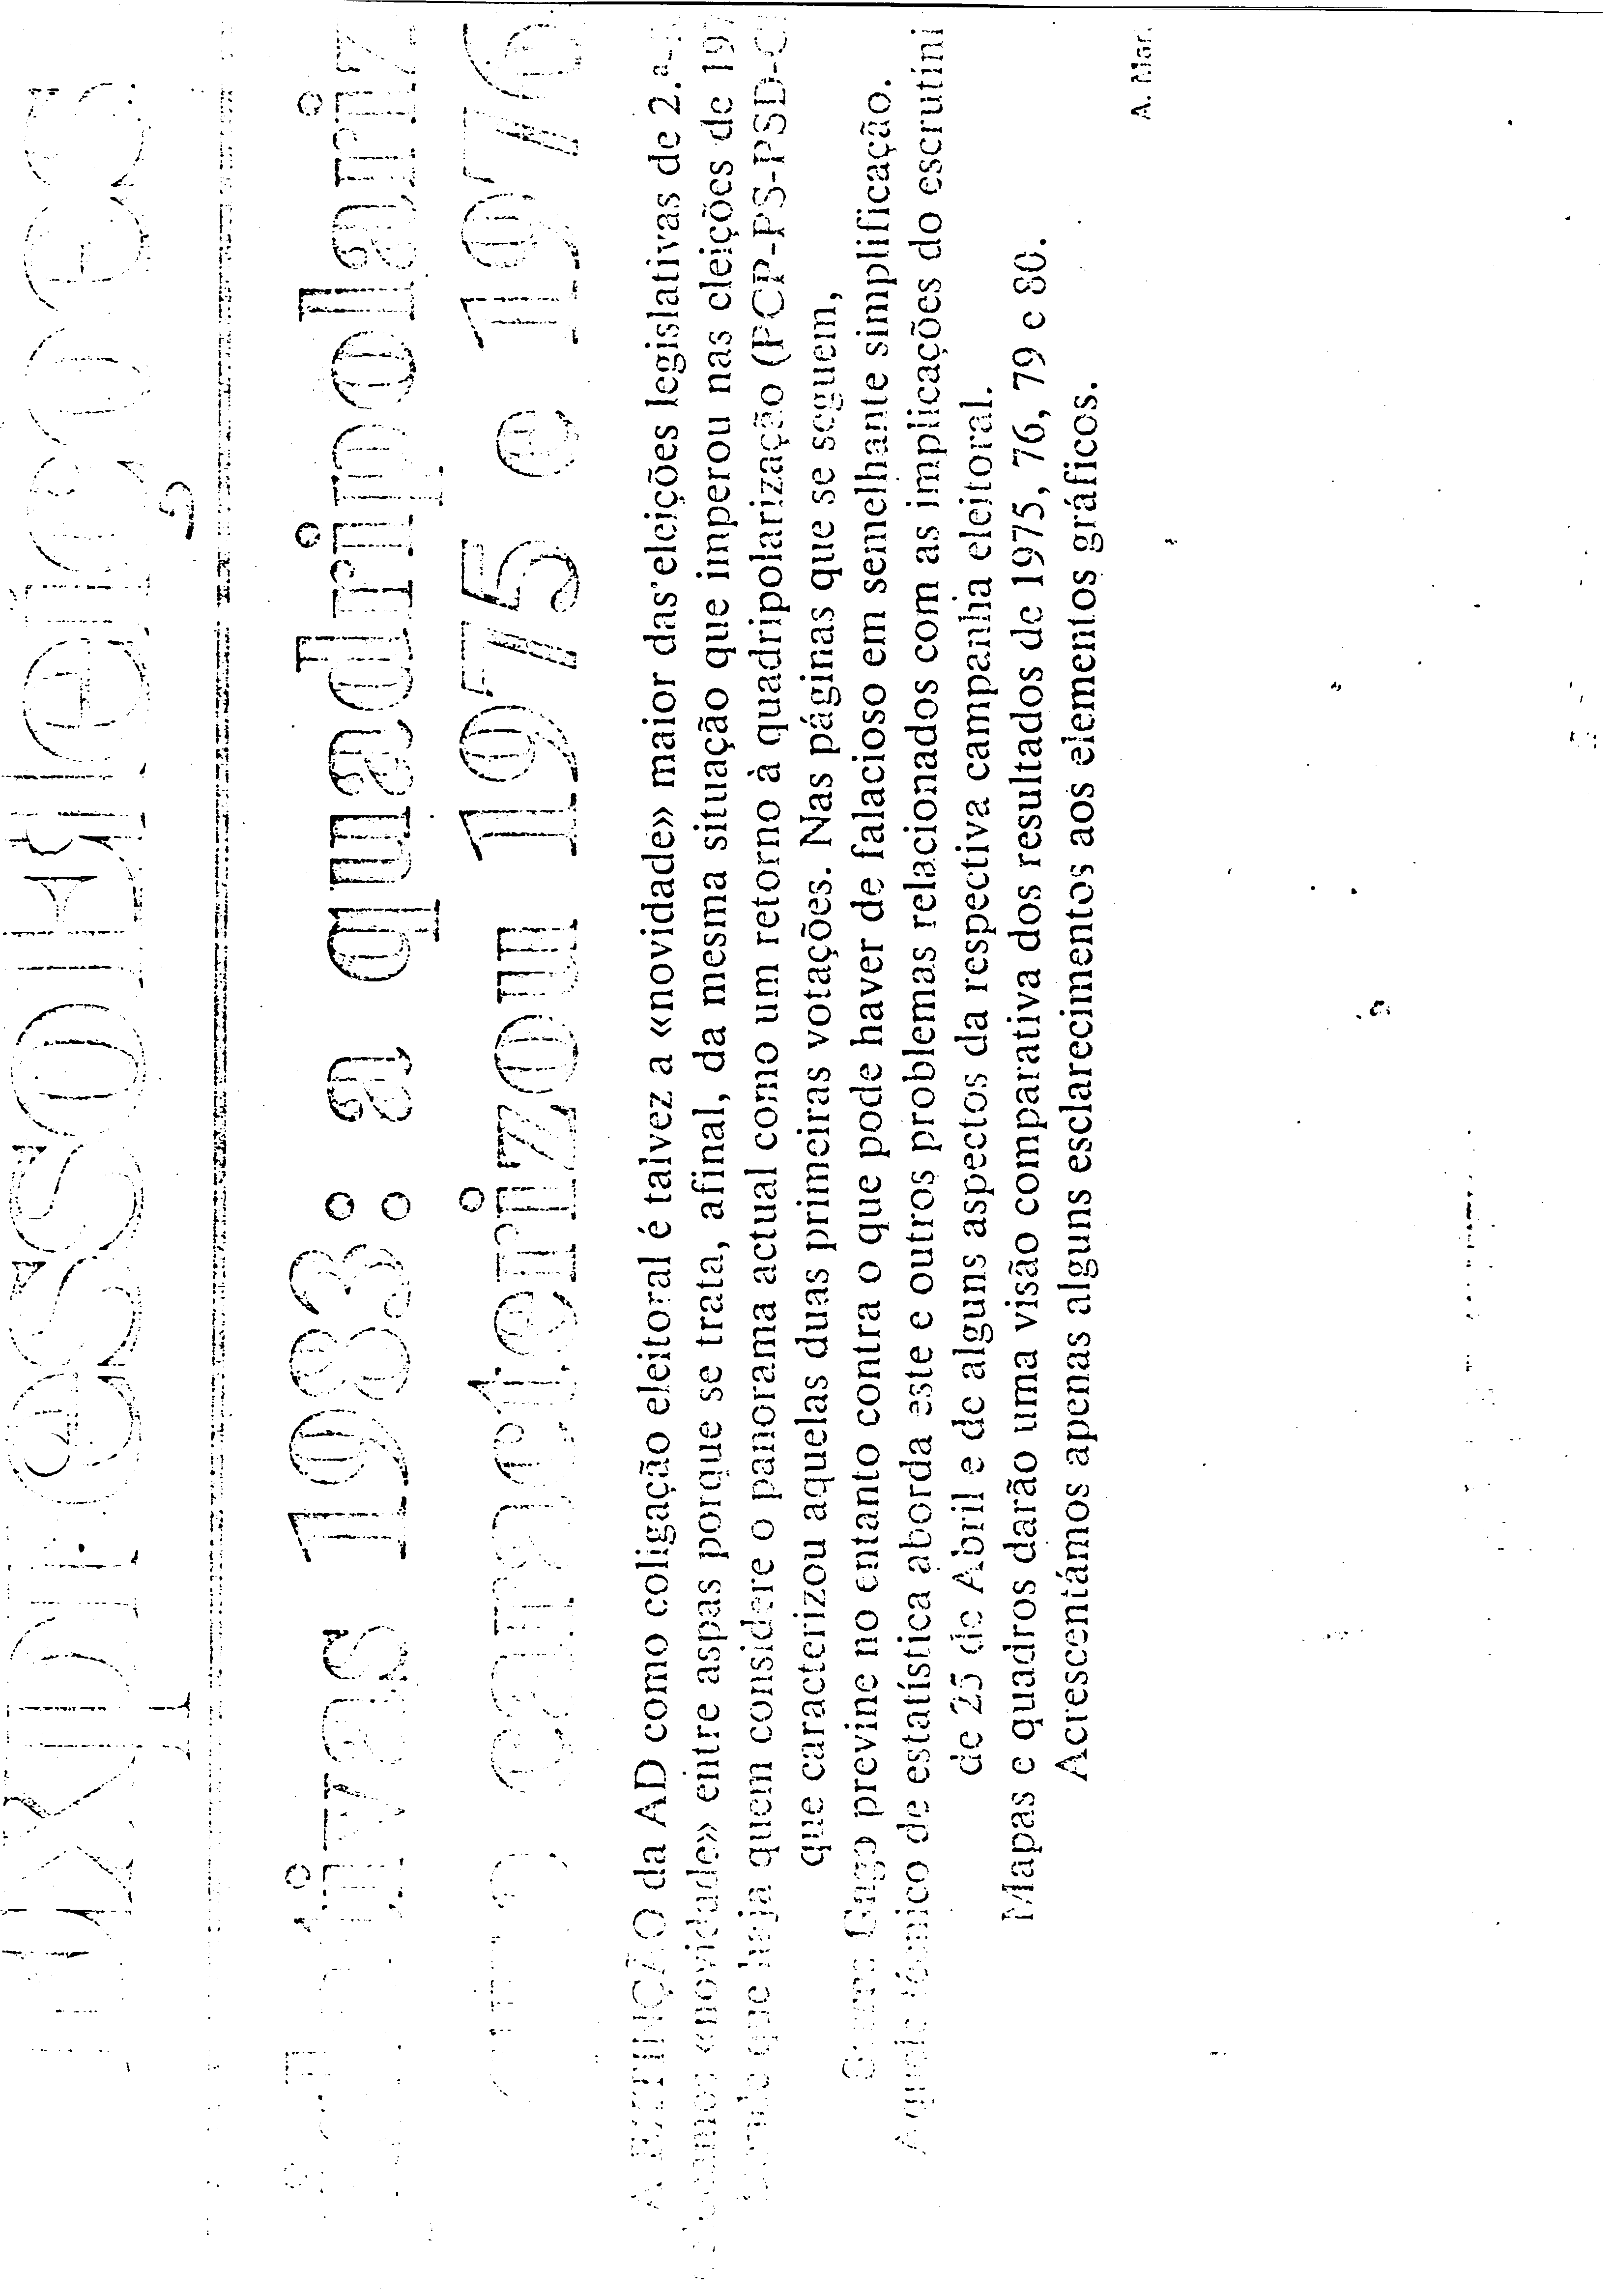 EXPRESSO ELEIÇÕES
1983: a quadripolariz
caracterizou 1975 e 1976
A EXTINÇÃO da AD como coligação eleitoral é talvez a «novidade» maior das eleições legislativas de 2.ª
«novidade» entre aspas porque se trata, afinal, da mesma situação que imperou nas eleições de 197
que haja quem considere o panorama actual como um retorno à quadripolarização (PCP-PS-PSD-C
que caracterizou aquelas duas primeiras votações. Nas páginas que se seguem,
Gago previne no entanto contra o que pode haver de falacioso em semelhante simplificação.
Aquele técnico de estatística aborda este e outros problemas relacionados com as implicações do escrutíni
de 25 de Abril e de alguns aspectos da respectiva campanha eleitoral.
Mapas e quadros darão uma visão comparativa dos resultados de 1975, 76, 79 e 80.
Acrescentámos apenas alguns esclarecimentos aos elementos gráficos.
A. Mar.